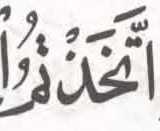 اتَّخَذْتُمُ ا